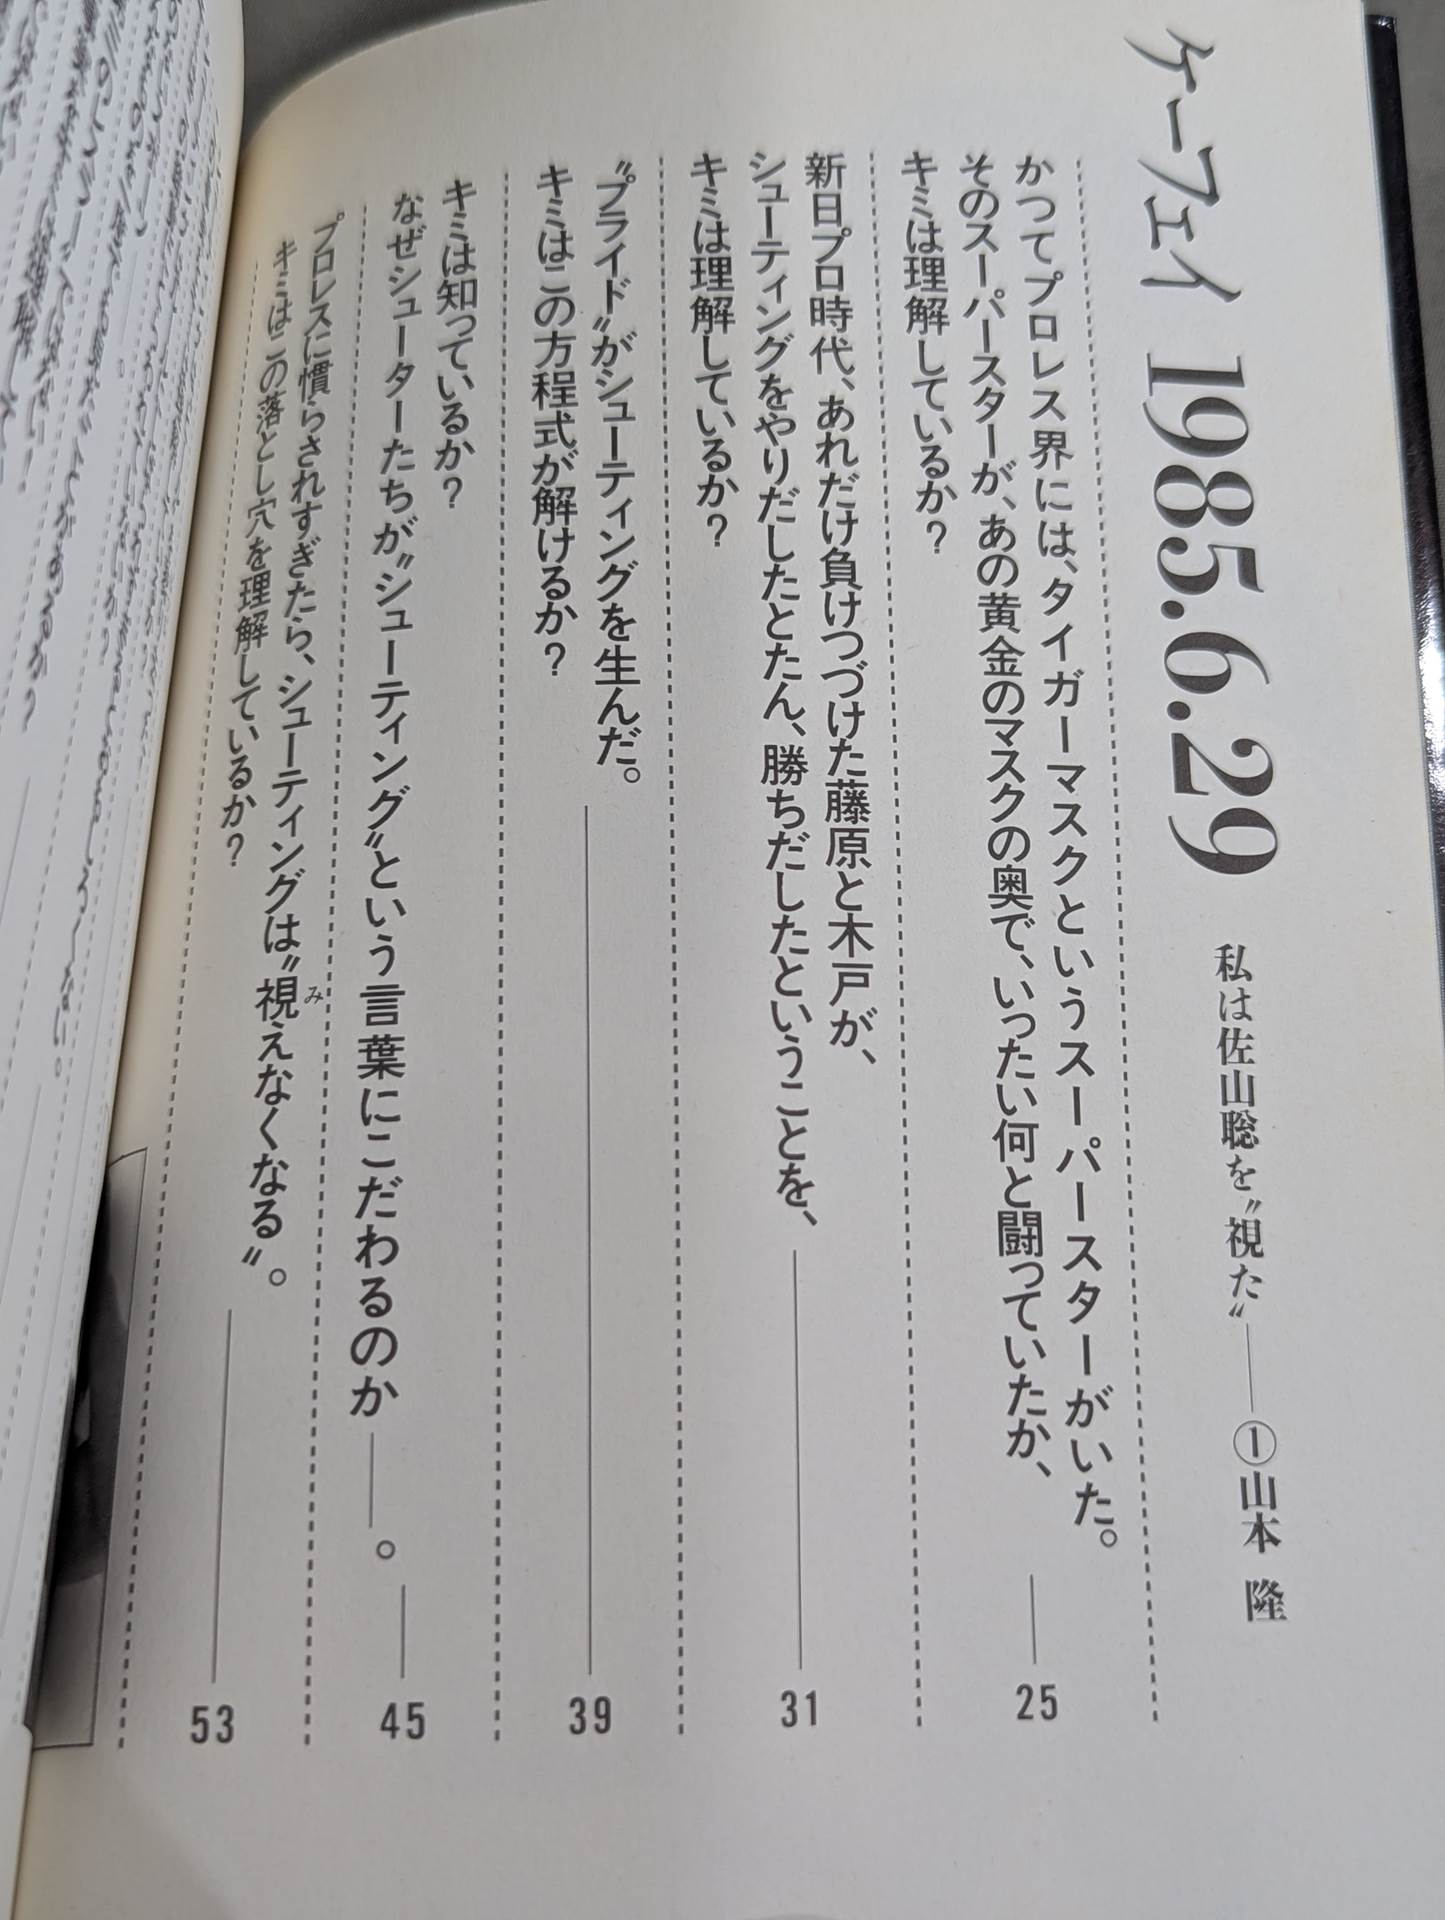 ケーフェイ 1985.6.29 私は佐山聡を〝視た〟――①山本 隆
かつてプロレス界には、タイガーマスクというスーパースターがいた。
そのスーパースターが、あの黄金のマスクの奥で、いったい何と闘っていたか、
キミは理解しているか? 25
新日プロ時代、あれだけ負けつづけた藤原と木戸が、
シューティングをやりだしたとたん、勝ちだしたということを、
キミは理解しているか? 31
〝プライド〟がシューティングを生んだ。
キミはこの方程式が解けるか? 39
キミは知っているか?
なぜシューターたちが〝シューティング〟という言葉にこだわるのか――。 45
プロレスに慣らされすぎたら、シューティングは〝視えなくなる〟。
み
キミはこの落とし穴を理解しているか? 53